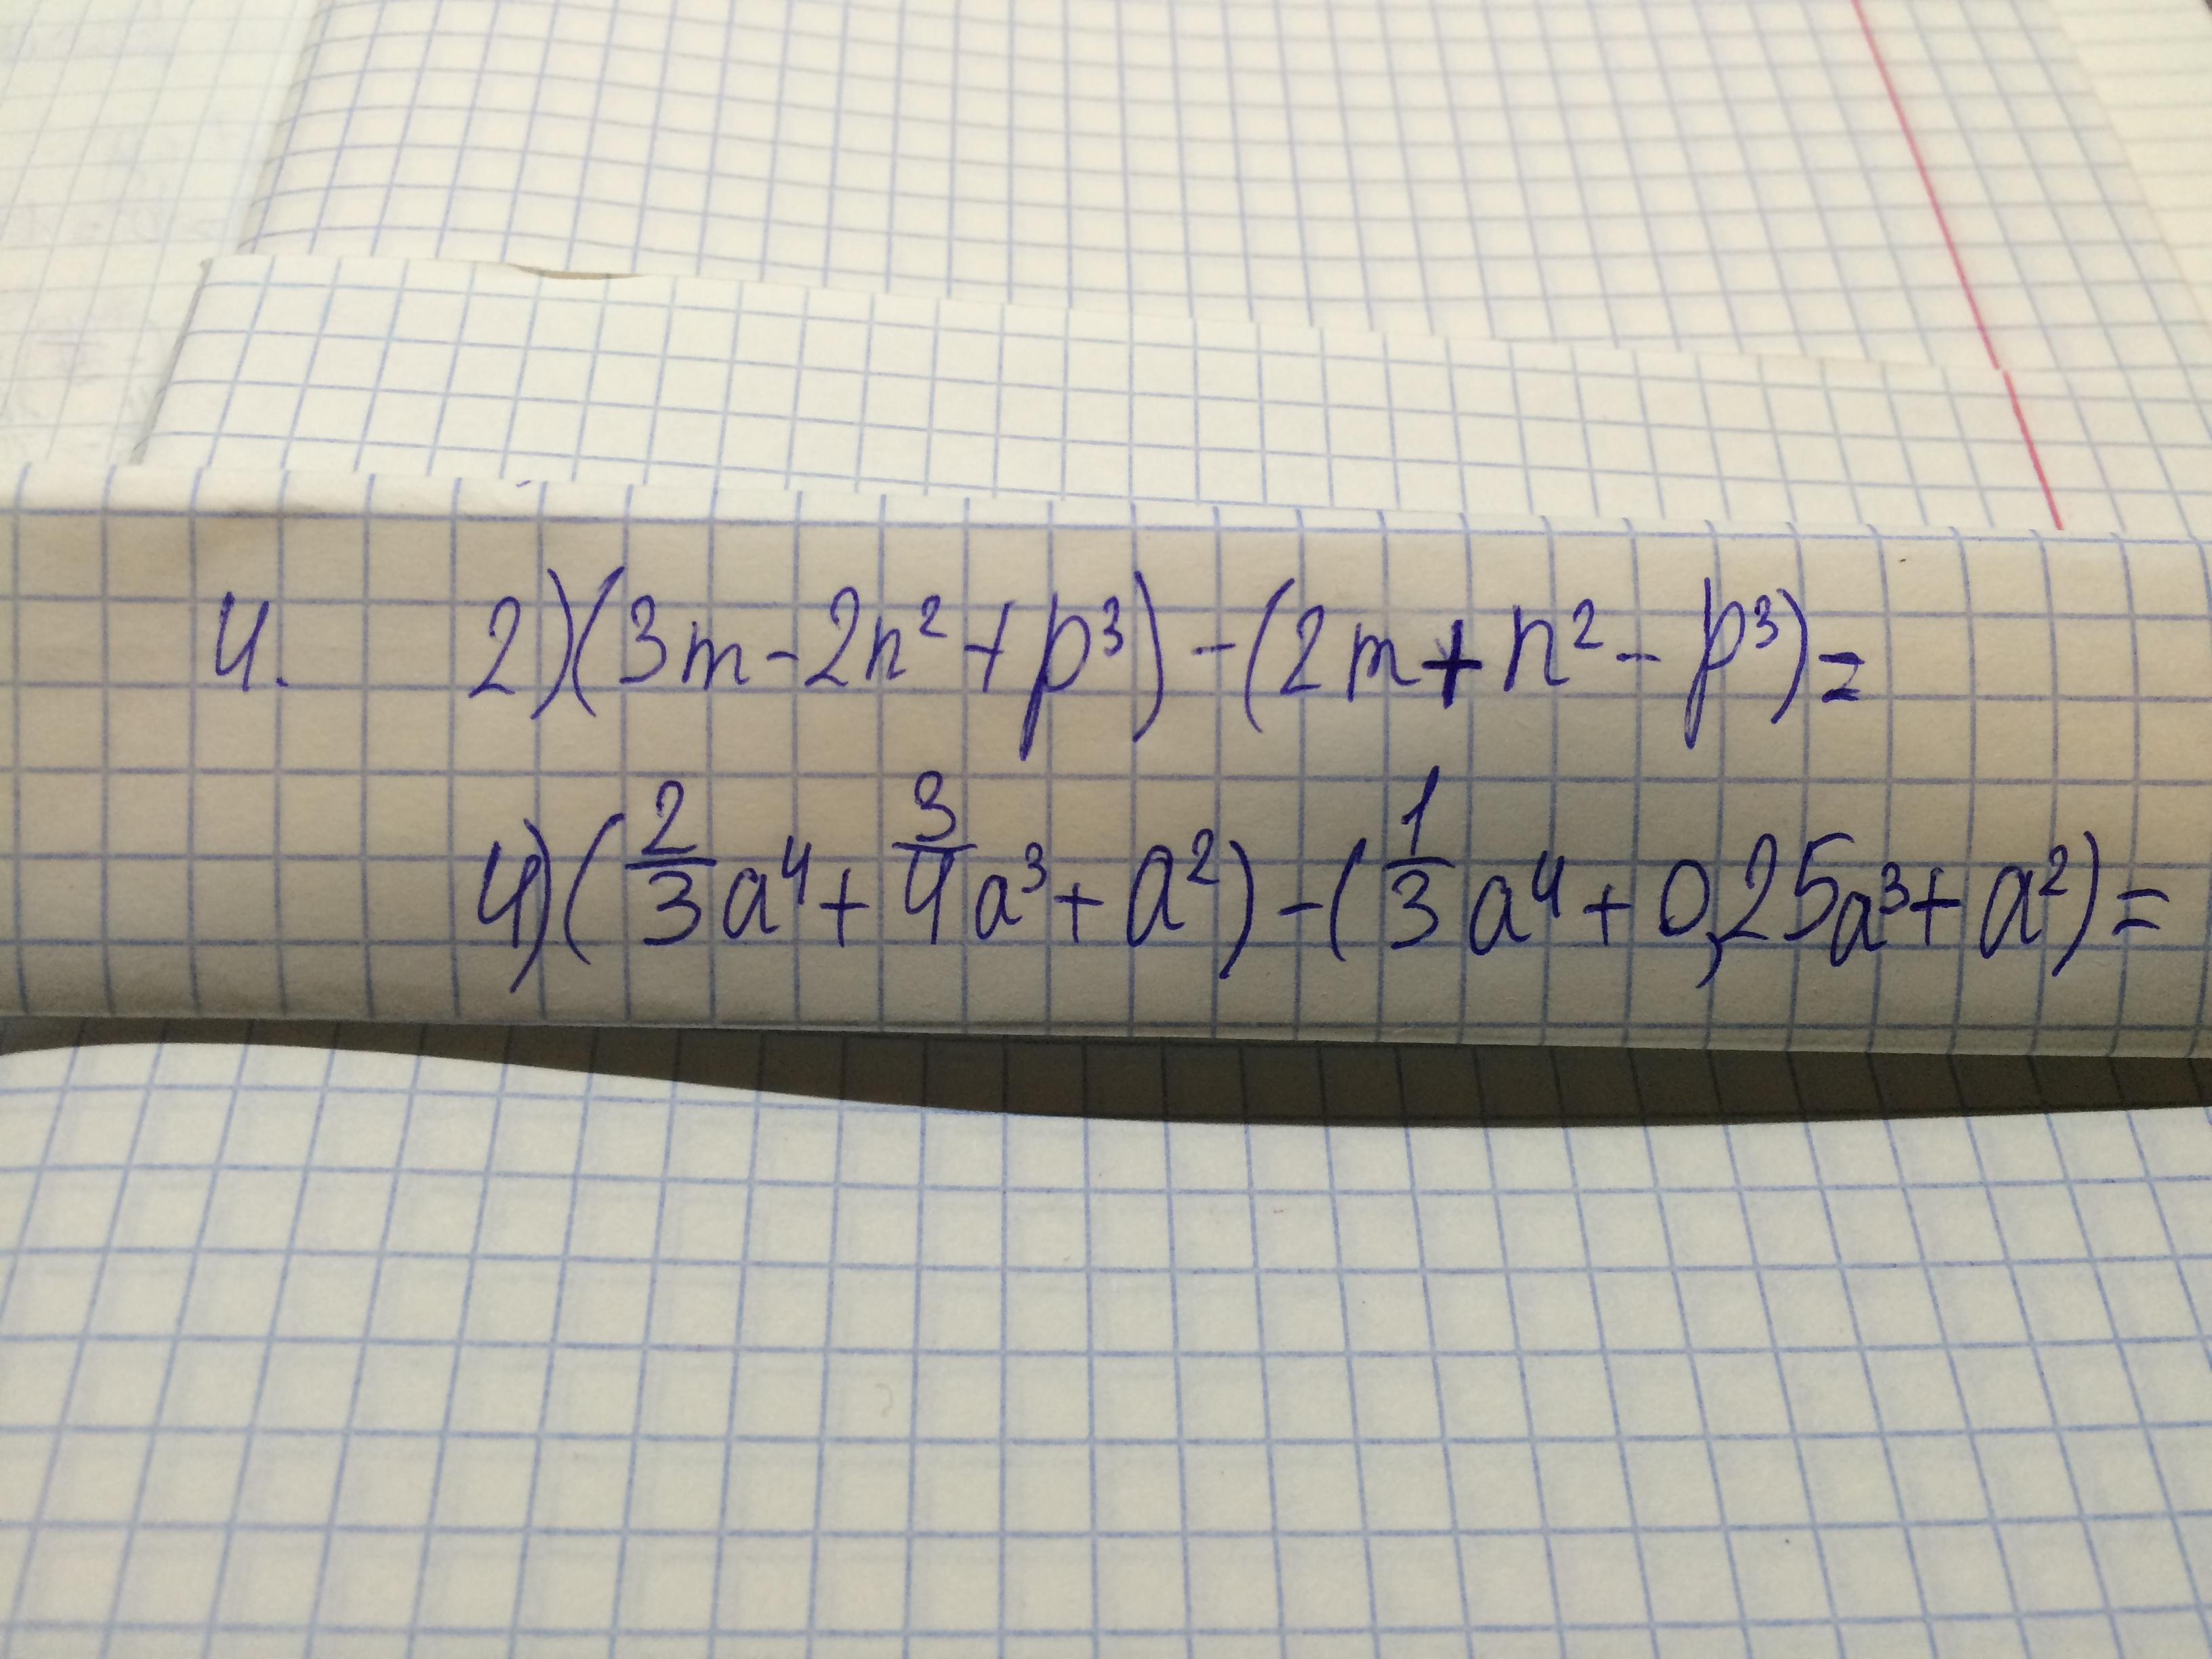 4. 2) (3m - 2n² + p³) - (2m + n² - p³) =
4) (2/3 a⁴ + 3/4 a³ + a²) - (1/3 a⁴ + 0,25a³ + a²) =